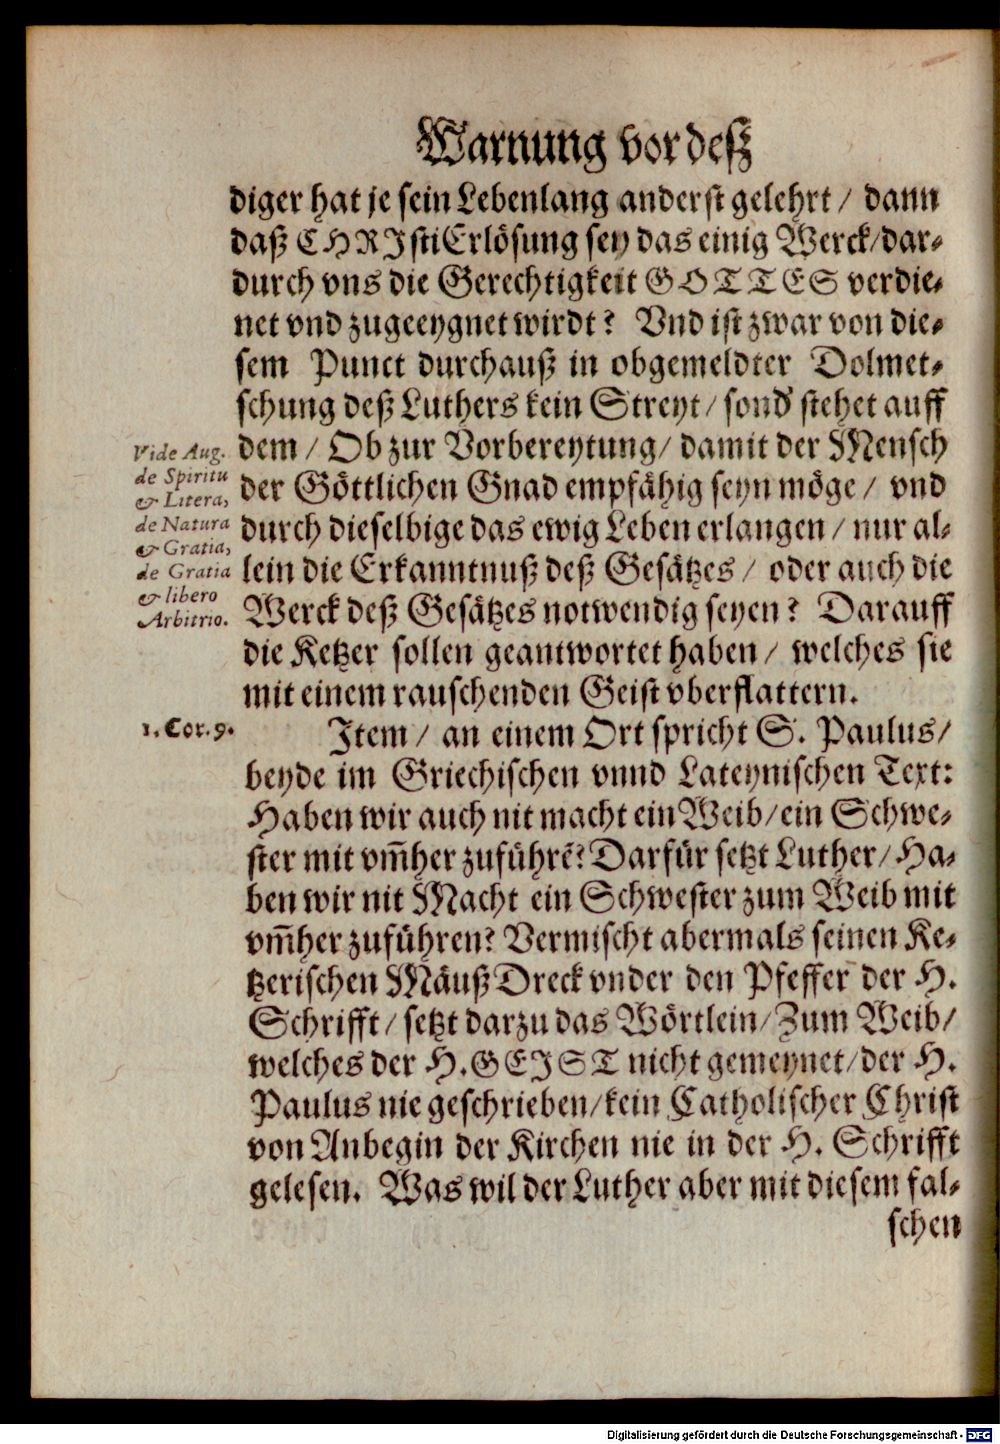 Warnung vor deß
diger hat je sein Lebenlang anderst gelehrt / dann
daß CHRJsti Erlösung sey das einig Werck/dar-
durch vns die Gerechtigkeit GOTTES verdie-
net vnd zugeeygnet wirdt? Vnd ist zwar von die-
sem Punct durchauß in obgemeldter Dolmet-
schung deß Luthers kein Streyt / sond' stehet auff
dem / Ob zur Vorbereytung / damit der Mensch
Vide Aug.
de Spiritu
& Litera,
de Natura
& Gratia,
de Gratia
& libero
Arbitrio.
der Göttlichen Gnad empfähig seyn möge / vnd
durch dieselbige das ewig Leben erlangen / nur al-
lein die Erkanntnuß deß Gesätzes / oder auch die
Werck deß Gesätzes notwendig seyen? Darauff
die Ketzer sollen geantwortet haben / welches sie
mit einem rauschenden Geist vberflattern.
1. Cor. 9.
Jtem / an einem Ort spricht S. Paulus /
beyde im Griechischen vnnd Lateynischen Text:
Haben wir auch nit macht ein Weib / ein Schwe-
ster mit vm̃her zuführẽ? Darfür setzt Luther / Ha-
ben wir nit Macht ein Schwester zum Weib mit
vm̃her zuführen? Vermischt abermals seinen Ke-
tzerischen Mäuß Dreck vnder den Pfeffer der H.
Schrifft / setzt darzu das Wörtlein / Zum Weib /
welches der H. GEJST nicht gemeynet / der H.
Paulus nie geschrieben / kein Catholischer Christ
von Anbegin der Kirchen nie in der H. Schrifft
gelesen. Was wil der Luther aber mit diesem fal-
schen
Digitalisierung gefördert durch die Deutsche Forschungsgemeinschaft - DFG